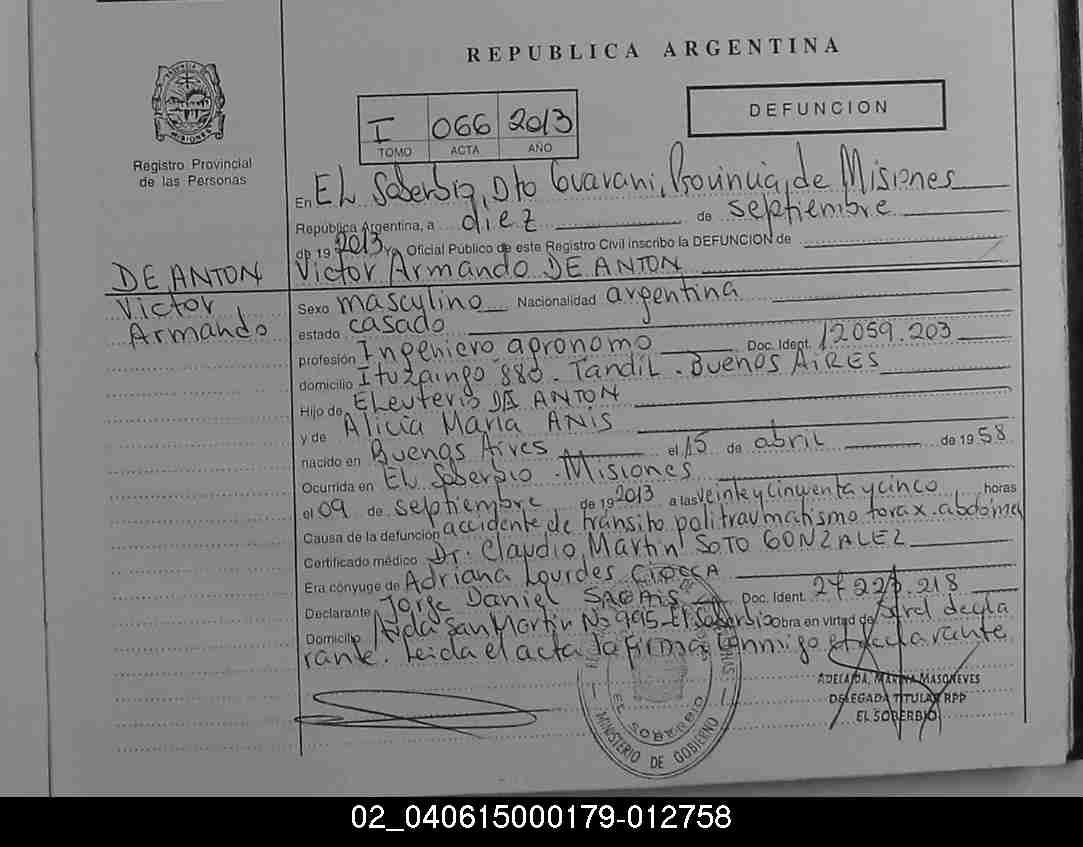 REPUBLICA ARGENTINA
DEFUNCION
I 066 2013
TOMO ACTA AÑO
PROVINCIA DE MISIONES
Registro Provincial
de las Personas
En EL Soberbio, Dto Guarani, Provincia, de Misiones
República Argentina, a diez de septiembre
de 19 2013 Yo, Oficial Público de este Registro Civil inscribo la DEFUNCION de
DE ANTON
Victor
Armando
Victor Armando DE ANTON
Sexo masculino Nacionalidad argentina
estado casado
profesión Ingeniero agronomo Doc. Ident. 12059.203
domicilio Ituzaingo 880 - Tandil - Buenos AiRES
Hijo de Eleuterio DE ANTON
y de Alicia Maria ANIS
nacido en Buenos Aires el 15 de abril de 19 58
Ocurrida en EL Soberbio - Misiones
el 09 de septiembre de 19 2013 a las veinte y cincuenta y cinco horas
Causa de la defunción accidente de transito politraumatismo torax-abdomen
Certificado médico Dr. Claudio Martin SOTO GONZALEZ
Era cónyuge de Adriana Lourdes CIOCCA
Declarante Jorge Daniel Doc. Ident. 27 227.218
Domicilio Avda San Martin No 995 - El Soberbio obra en virtud de decla
rante. Leida el acta la firma conmigo el declarante
ADELAIDA, MARINA MASONEVES
DELEGADA TITULAR RPP
EL SOBERBIO
EL SOBERBIO
MINISTERIO DE GOBIERNO
02_040615000179-012758